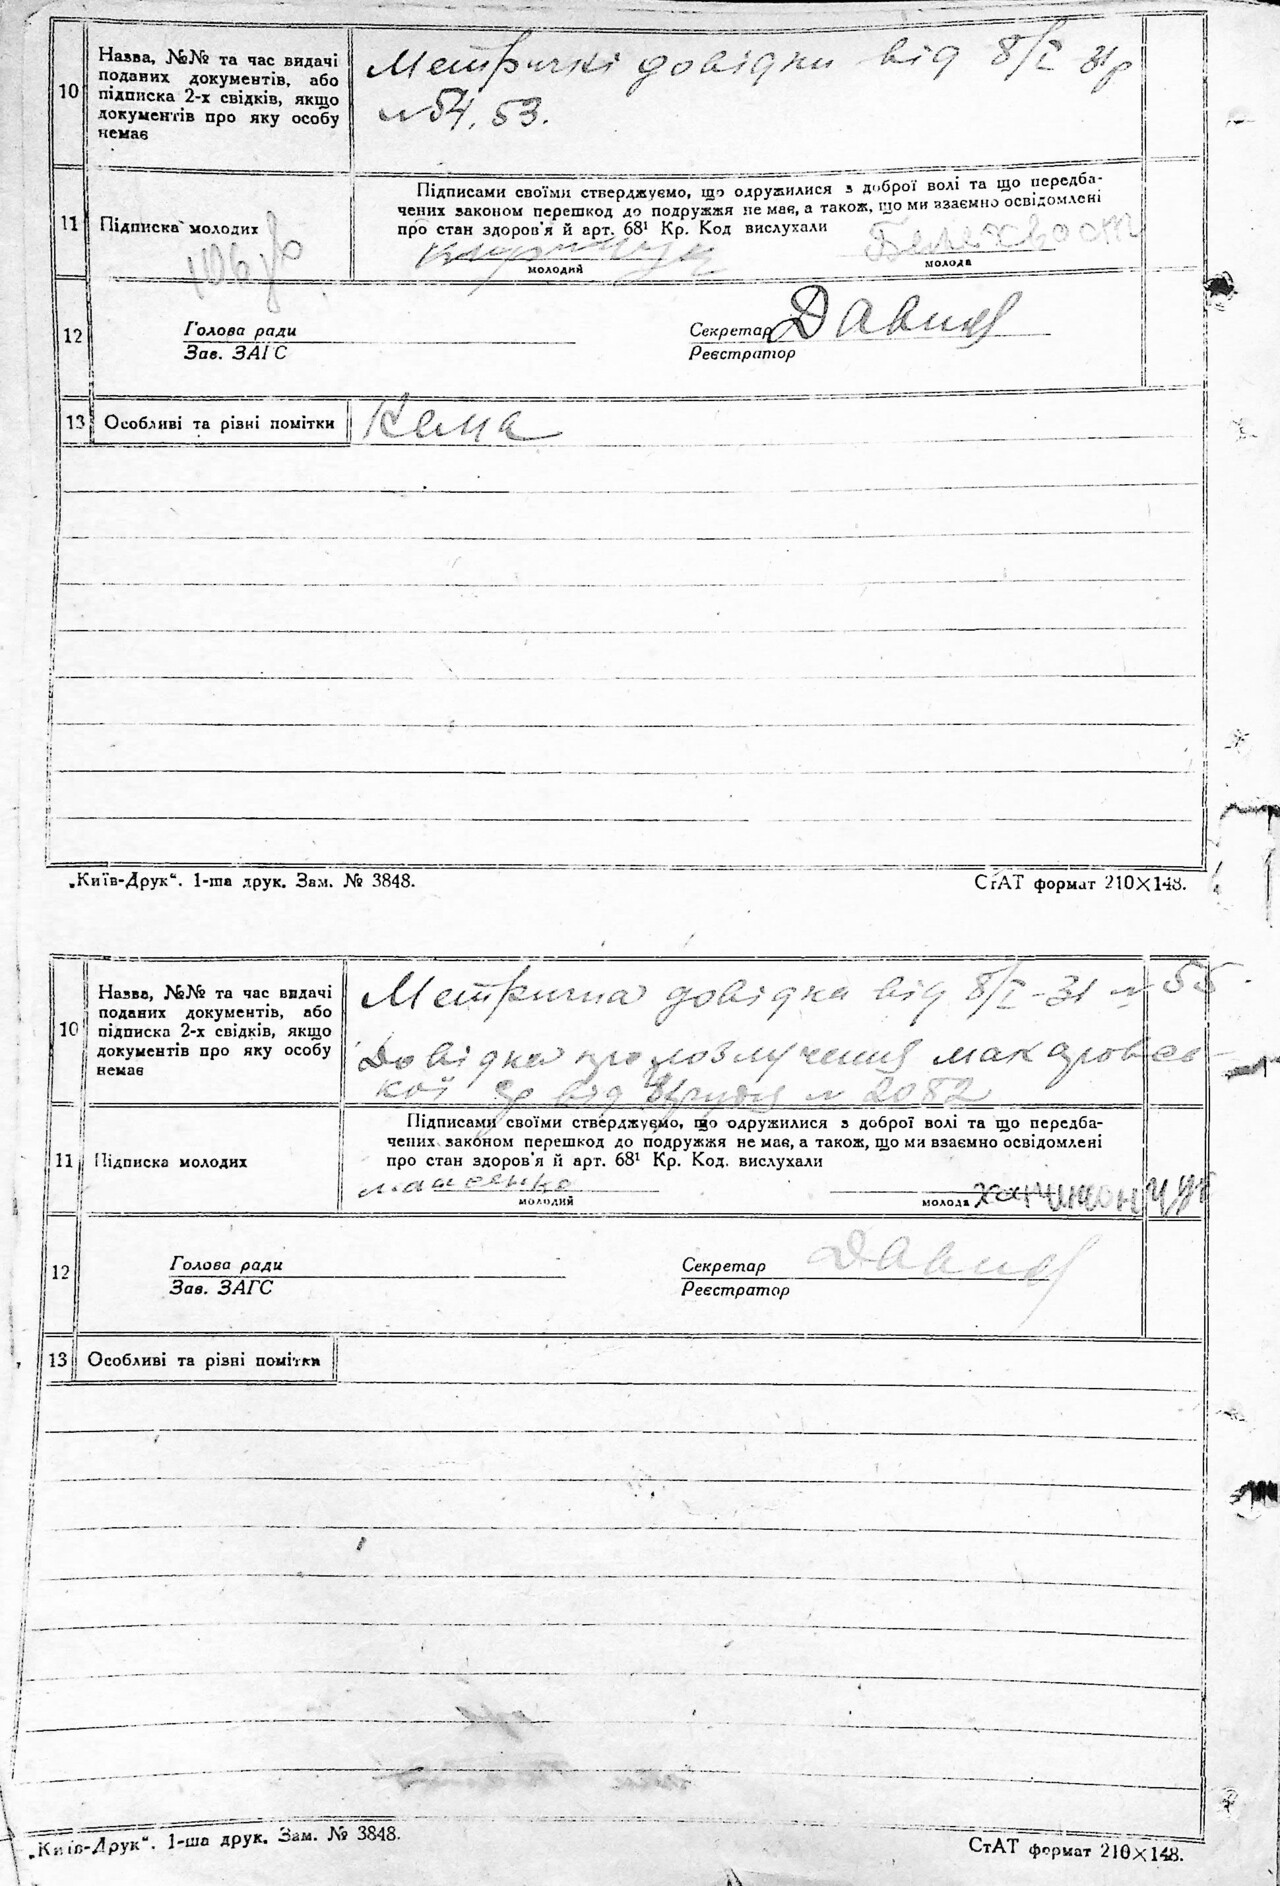 10
Назва, №№ та час видачі
поданих документів, або
підписка 2-х свідків, якщо
документів про яку особу
немає
Метричні довідки від 8/I 31р
№ 54, 53.
11
Підписка молодих
Підписами своїми стверджуємо, що одружилися з доброї волі та що передба-
чених законом перешкод до подружжя не має, а також, що ми взаємно освідомлені
про стан здоров'я й арт. 68¹ Кр. Код вислухали
молодий
Белехвост
молода
12
Голова ради
Зав. ЗАГС
Секретар
Реєстратор
13
Особливі та різні помітки
„Київ-Друк“. 1-ша друк. Зам. № 3848.
СтАТ формат 210×148.
10
Назва, №№ та час видачі
поданих документів, або
підписка 2-х свідків, якщо
документів про яку особу
немає
Метрична довідка від 8/I-31 № 55
Довідка про розлучення Макаровсь-
кої від № 2082
11
Підписка молодих
Підписами своїми стверджуємо, що одружилися з доброї волі та що передба-
чених законом перешкод до подружжя не має, а також, що ми взаємно освідомлені
про стан здоров'я й арт. 68¹ Кр. Код. вислухали
молодий
молода
12
Голова ради
Зав. ЗАГС
Секретар
Реєстратор
13
Особливі та різні помітки
„Київ-Друк“. 1-ша друк. Зам. № 3848.
СтАТ формат 210×148.